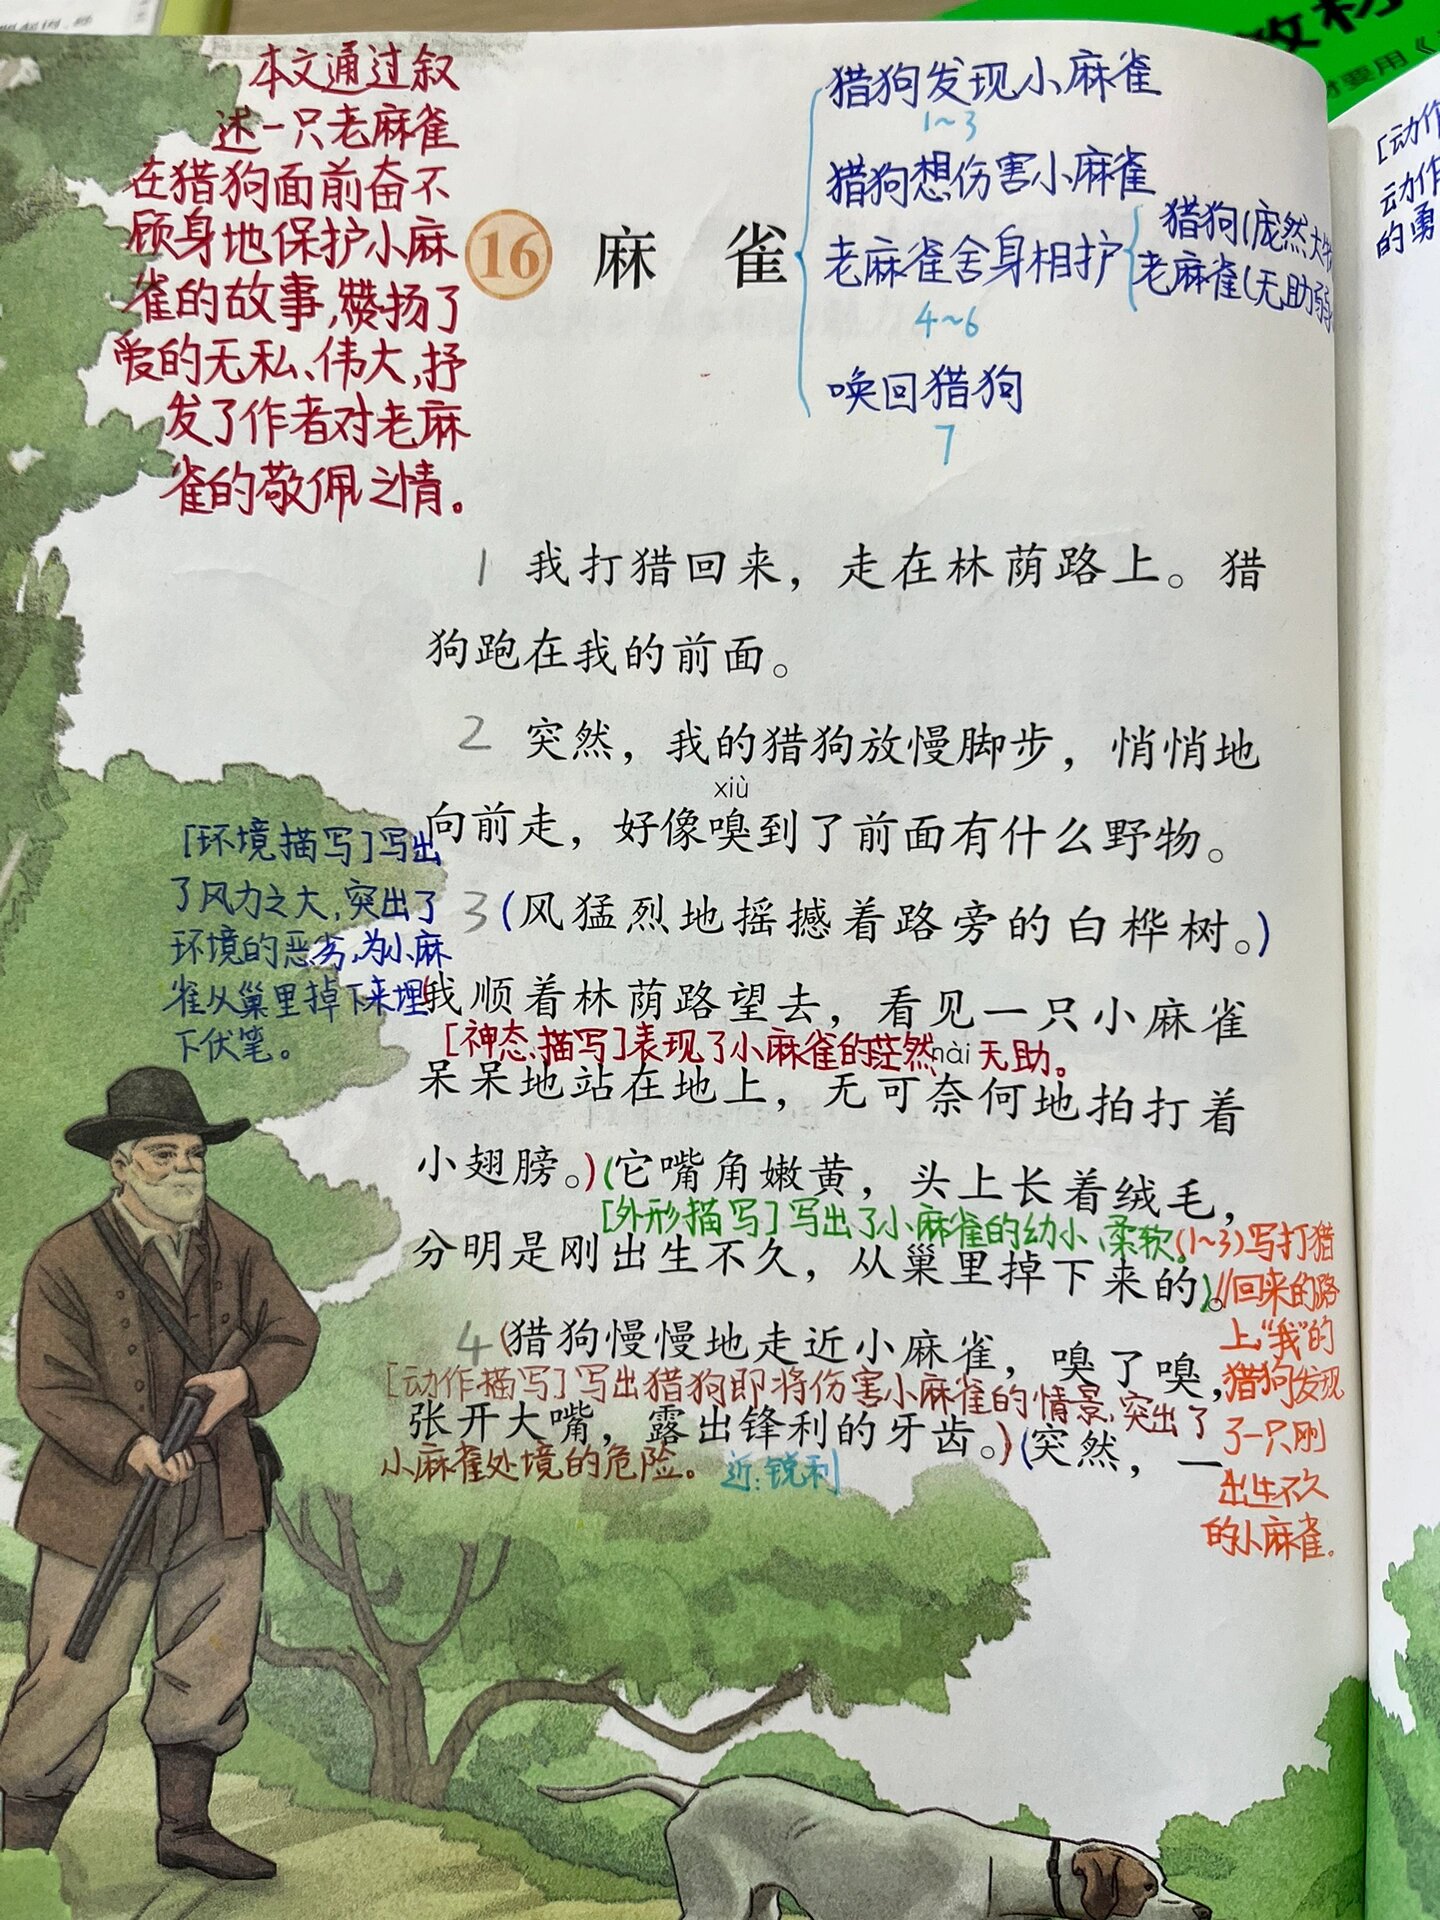 教材
要用《
本文通过叙
述一只老麻雀
在猎狗面前奋不
顾身地保护小麻
雀的故事,赞扬了
爱的无私、伟大,抒
发了作者对老麻
雀的敬佩之情。
16 麻 雀
猎狗发现小麻雀
1~3
猎狗想伤害小麻雀
老麻雀舍身相护
4~6
猎狗(庞然大
老麻雀(无助弱
唤回猎狗
7
[动作
动作
的勇
1 我打猎回来，走在林荫路上。猎
狗跑在我的前面。
2 突然，我的猎狗放慢脚步，悄悄地
xiù
向前走，好像嗅到了前面有什么野物。
3 (风猛烈地摇撼着路旁的白桦树。)
[环境描写]写出
了风力之大,突出了
环境的恶劣,为小麻
雀从巢里掉下来埋
下伏笔。
(我顺着林荫路望去，看见一只小麻雀
[神态描写]表现了小麻雀的茫然、无助。
nài
呆呆地站在地上，无可奈何地拍打着
小翅膀。)(它嘴角嫩黄，头上长着绒毛，
[外形描写]写出了小麻雀的幼小、柔软。
分明是刚出生不久，从巢里掉下来的)。//
(1~3)写打猎
回来的路
上“我”的
猎狗发现
了一只刚
出生不久
的小麻雀。
4 (猎狗慢慢地走近小麻雀，嗅了嗅，
[动作描写]写出猎狗即将伤害小麻雀的情景,突出了
张开大嘴，露出锋利的牙齿。)(突然，一
小麻雀处境的危险。
近:锐利